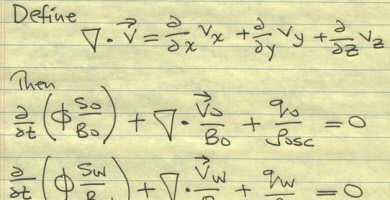 Define
∇ · V⃗ = ∂/∂x Vx + ∂/∂y Vy + ∂/∂z Vz
Then
∂/∂t (ϕ So/Bo) + ∇ · V⃗o/Bo + qo/ρosc = 0
∂/∂t (ϕ Sw/B) + ∇ · V⃗w/B + qw = 0